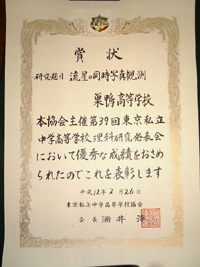 賞状
研究題目 流星の同時写真観測
巣鴨高等学校
本協会主催第39回東京私立
中学高等学校理科研究発表会
において優秀な成績をおさめ
られたのでこれを表彰します
平成12年2月26日
東京私立中学高等学校協会
会長 酒井